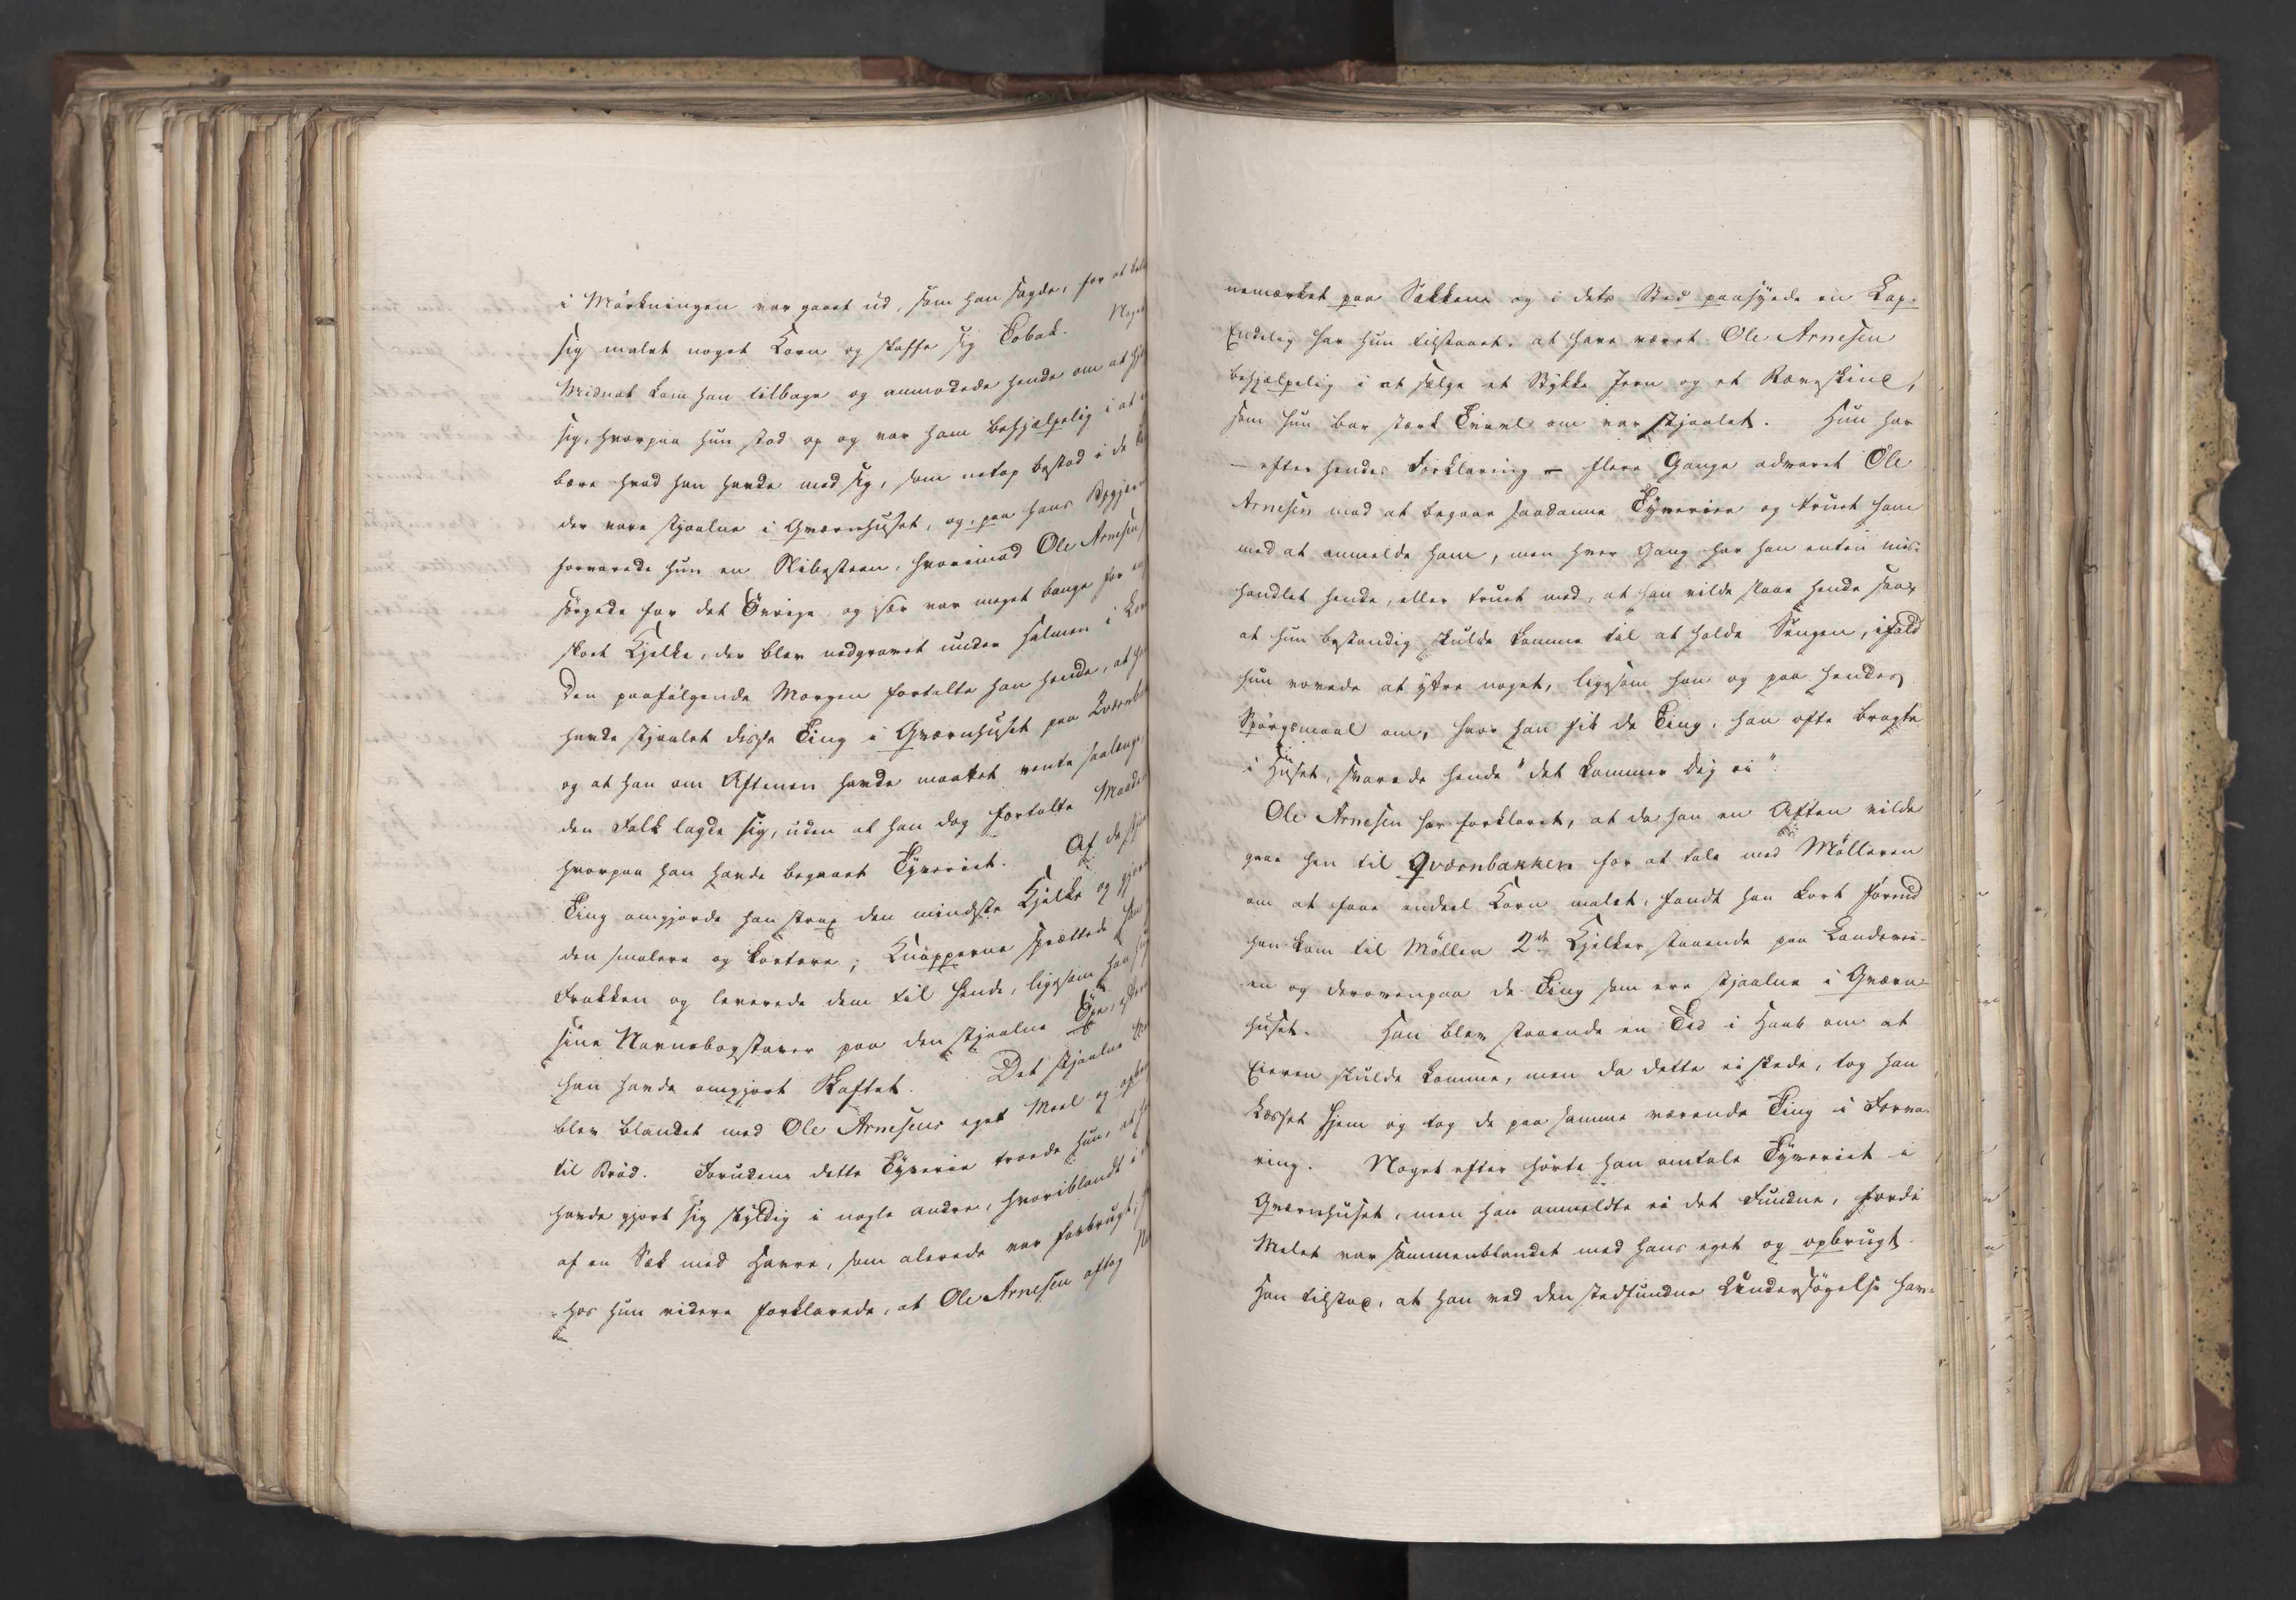 i Mörkningen var gaaet ud, som han sagde, for at
sig malet noget Korn og skaffe sig Tobak. Noget
Midnat kom han tilbage og anmodede hende om at
sig, hvorpaa hun stod op og var ham behjælpelig i at
bære hvad han havde med sig, som netop bestod i de
der vare stjaalne i Qværnhuset, og, paa hans Begjæring
forvarede hun en Slibesteen, hvorimod Ole Arnesen
sörgede for det Övrige, og især var meget bange for
skoet Kjelke, der blev nedgravet under Halmen i
Den paafölgende Morgen fortalte han hende, at han
havde stjaalet disse Ting i Qværnhuset paa
og at han om Aftenen havde maattet vente saalænge,
den Folk lagde sig, uden at han dog fortalte Maaden
hvorpaa han havde begaaet Tyveriet. Af de
Ting omgjorde han strax den mindste Kjelke og gjorde
den smalere og kortere; Knapperne sprættede han
Frakken og leverede dem til hende, ligesom han
sine Navnebogstaver paa den stjaalne Öxe,
han havde omgjort Skaftet. Det stjaalne
blev blandet med Ole Arnesens eget Meel og
til Bröd. Foruden dette Tyverie troede hun, at
havde gjort sig skyldig i nogle andre, hvoriblandt
af en Sæk med Havre, som alerede var forbrugt,
-hos hun videre forklarede, at Ole Arnesen aftog
nemærket paa Sækken og i dets Sted paasyede en Lap.
Endelig har hun tilstaaet, at have været Ole Arnesen
behjælpelig i at sælge et Stykke Jern og et Ræveskind,
som hun bar stærk Tvivl om var stjaalet. Hun har
– efter hendes Forklaring – flere Gange advaret Ole
Arnesen mod at begaae saadanne Tyverier og truet ham
med at anmelde ham, men hver Gang har han enten mis-
handlet hende, eller truet med, at han vilde slaae hende saa,
at hun bestandig skulde komme til at holde Sengen, ifald
hun vovede at yttre noget, ligesom han og paa hendes
Spörgsmaal om, hvor han fik de Ting, han ofte bragte
i Huset, svarede hende "det kommer Dig ei".
Ole Arnesen har forklaret, at da han en Aften vilde
gaae hen til Qværnbakken for at tale med Mölleren
om at faae endeel Korn malet, fandt han kort förend
han kom til Möllen 2de Kjelker staaende paa Landevei-
en og derovenpaa de Ting som ere stjaalne i Qværn-
huset. Han blev staaende en Tid i Haab om at
Eieren skulde komme, men da dette ei skede, tog han
Læsset hjem og tog de paa samme værende Ting i Forva-
ring. Noget efter hörte han omtale Tyveriet i
Qværnhuset, men han anmeldte ei det Fundne, fordi
Melet var sammenblandet med hans eget og opbrugt.
Han tilstaaer, at han ved den stedfundne Undersögelse hav-